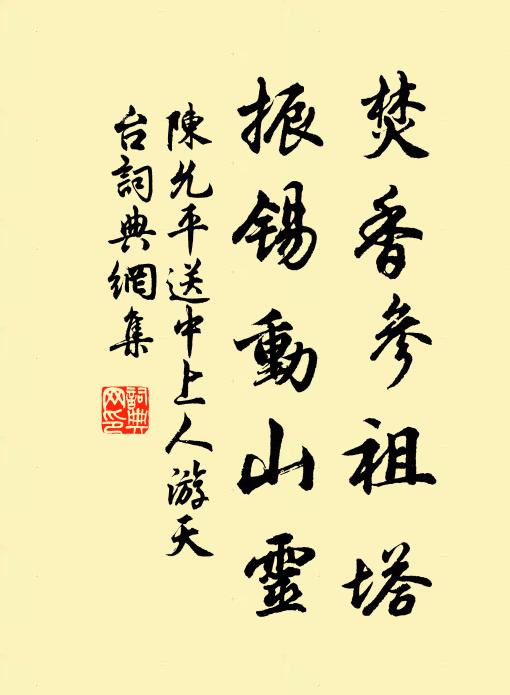 焚香參祖塔
振錫動山靈
陳允平送中上人游天
台詞典網集
詞典
网印